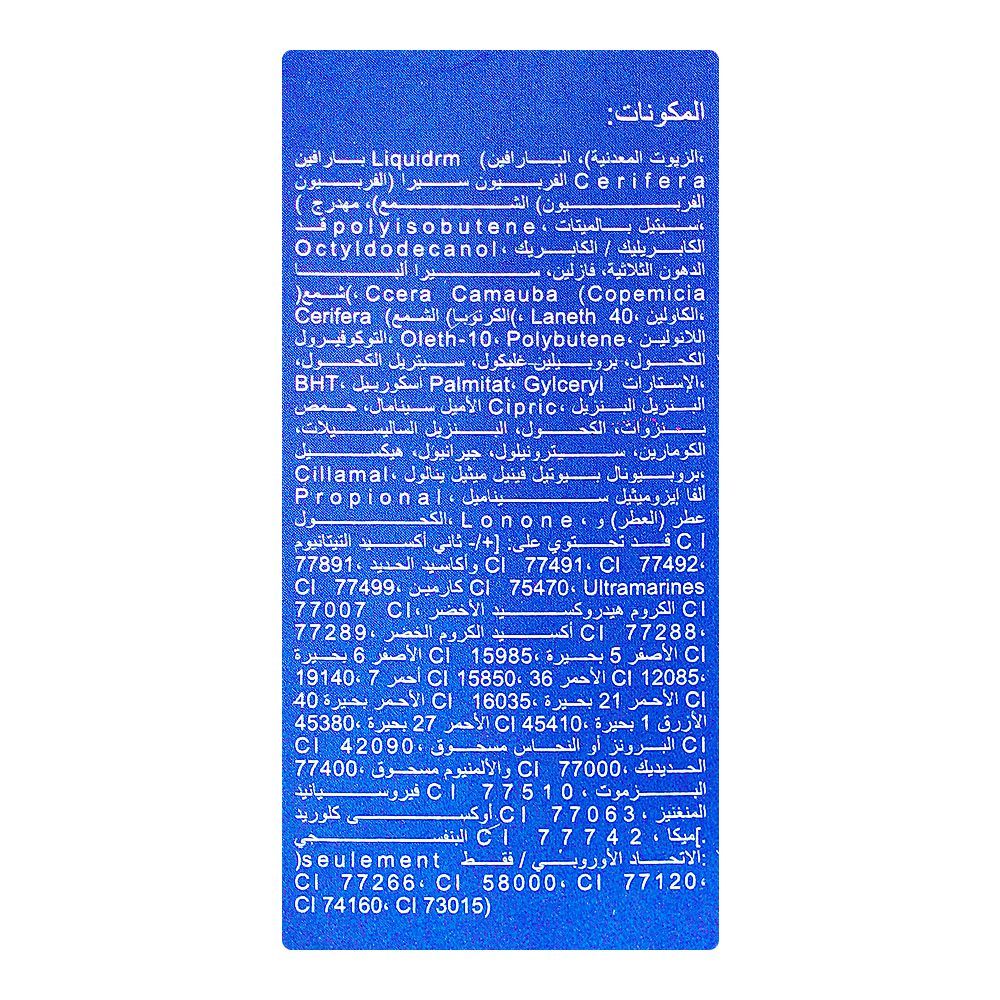 المكونات:
بارافين Liquidrm (الزيوت المعدنية)، البارافين،
الفربيون سيرا (الفربيون Cerifera
الفربيون) الشمع)، مهدرج )
قد polyisobutene، سيتيل بالميتات،
Octyldodecanol، الكابريليك / الكابريك
الدهون الثلاثية، فازلين، سيرا ألبا
)شمع(، Ccera Camauba (Copemicia
Cerifera (الكرنوبا) الشمع(، Laneth 40، الكاولين،
اللانولين، Oleth-10، Polybutene، التوكوفيرول
الكحول، بروبيلين غليكول، سيتريل الكحول،
BHT، اسكوربيل Palmitat، Gylceryl الإستارات،
البنزيل البنزيل Cipric، الأميل سينامال، حمص
بنزوات، الكحول، البنزيل الساليسيلات،
الكومارين، سترونيلول، جيرانيول، هيكسيل
Cillamal، بروبيونال بيوتيل فينيل ميثيل ينالول،
Propional، ألفا إيزوميثيل سيناميل
الكحول، Lonone، عطر (العطر) و
قد تحتوي على: [+/- ثاني أكسيد التيتانيوم CI
77891، وأكاسيد الحديد CI 77491، CI 77492،
CI 77499، كارمين CI 75470، Ultramarines
77007 CI، الكروم هيدروكسيد الأخضر CI
77289، أكسيد الكروم الخضر CI 77288،
الأصفر 6 بحيرة CI 15985، الأصفر 5 بحيرة CI
19140، أحمر 7 CI 15850، الأحمر 36 CI 12085،
الأحمر بحيرة 40 CI 16035، الأحمر 21 بحيرة CI
45380، الأحمر 27 بحيرة CI 45410، الأزرق 1 بحيرة
CI 42090، البرونز أو النحاس مسحوق CI
77400، والألمنيوم مسحوق CI 77000، الحديديك
فيروسيانيد CI 77510، البزموت
أوكسي كلوريد CI 77063، المنغنيز
البنفسجي CI 77742، ميكا].
)seulement الاتحاد الأوروبي / فقط:
CI 77266، CI 58000، CI 77120،
CI 74160، CI 73015)